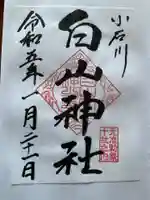 小石川
白山神社
令和五年一月二十一日